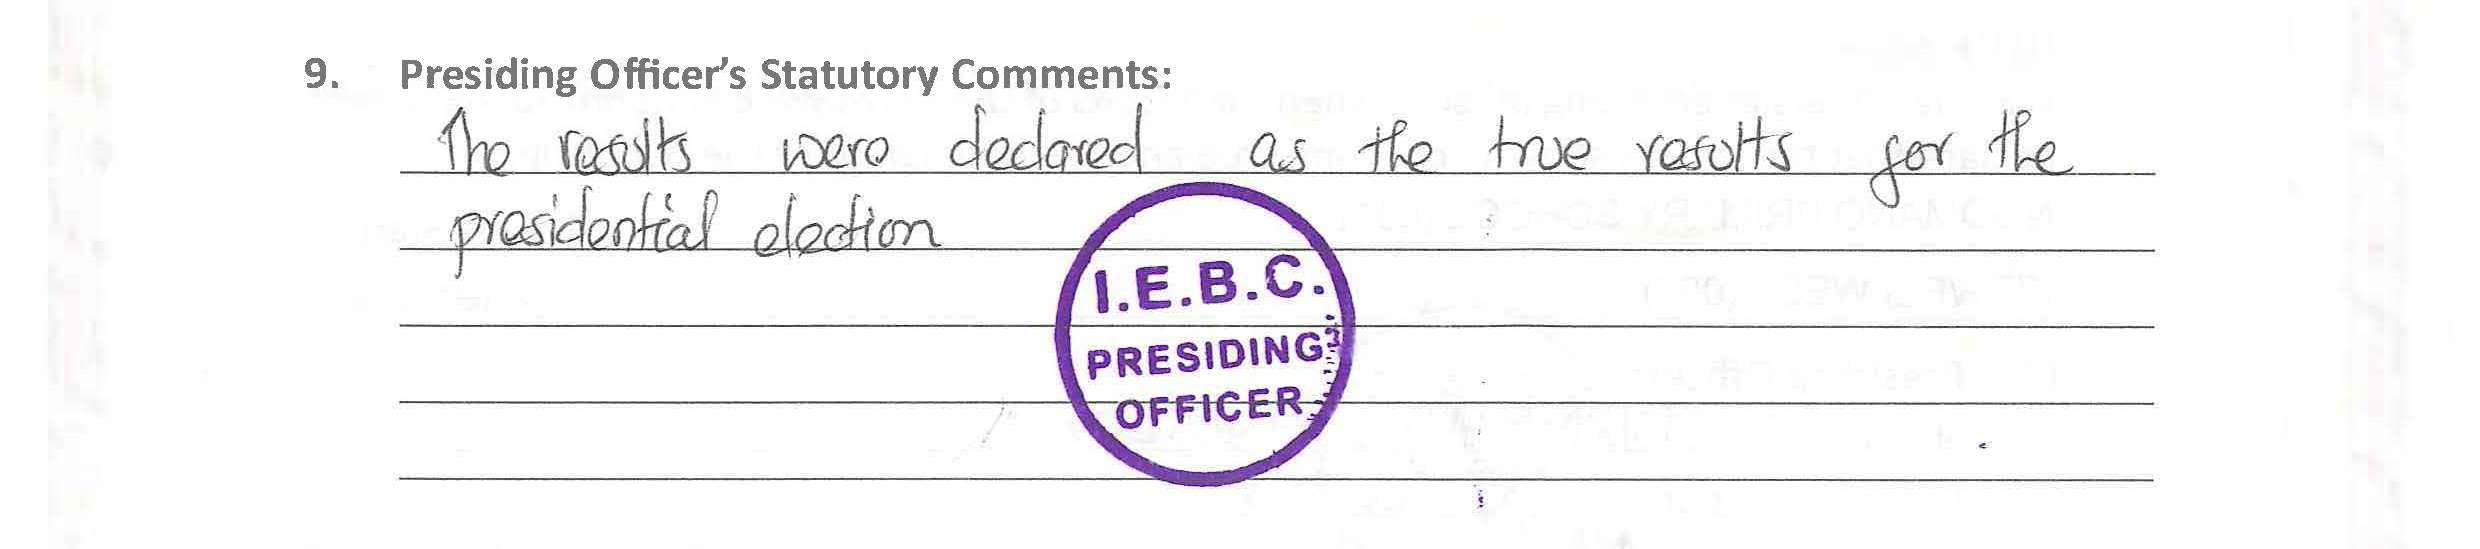 9. Presiding Officer's Statutory Comments:
The results were declared as the true results for the
presidential election
I.E.B.C.
PRESIDING
OFFICER